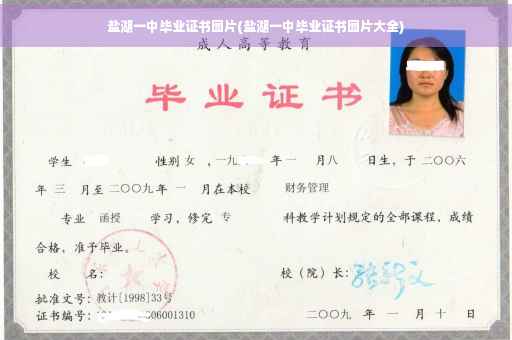 盐湖一中毕业证书图片(盐湖一中毕业证书图片大全)
成人高等教育
毕业证书
学生 性别 女 ，一九 年 一 月 八 日生，于 二〇〇六
年 三 月至 二〇〇九 年 一 月在本校 财务管理
专业 函授 学习，修完 专 科教学计划规定的全部课程，成绩
合格，准予毕业。
校 名： 校（院）长：
批准文号：教计[1998]33号
证书编号： 06001310 二〇〇九 年 一 月 十 日